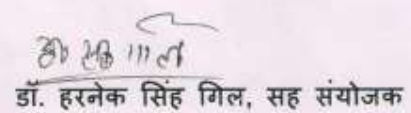 डॉ. हरनेक सिंह गिल, सह संयोजक